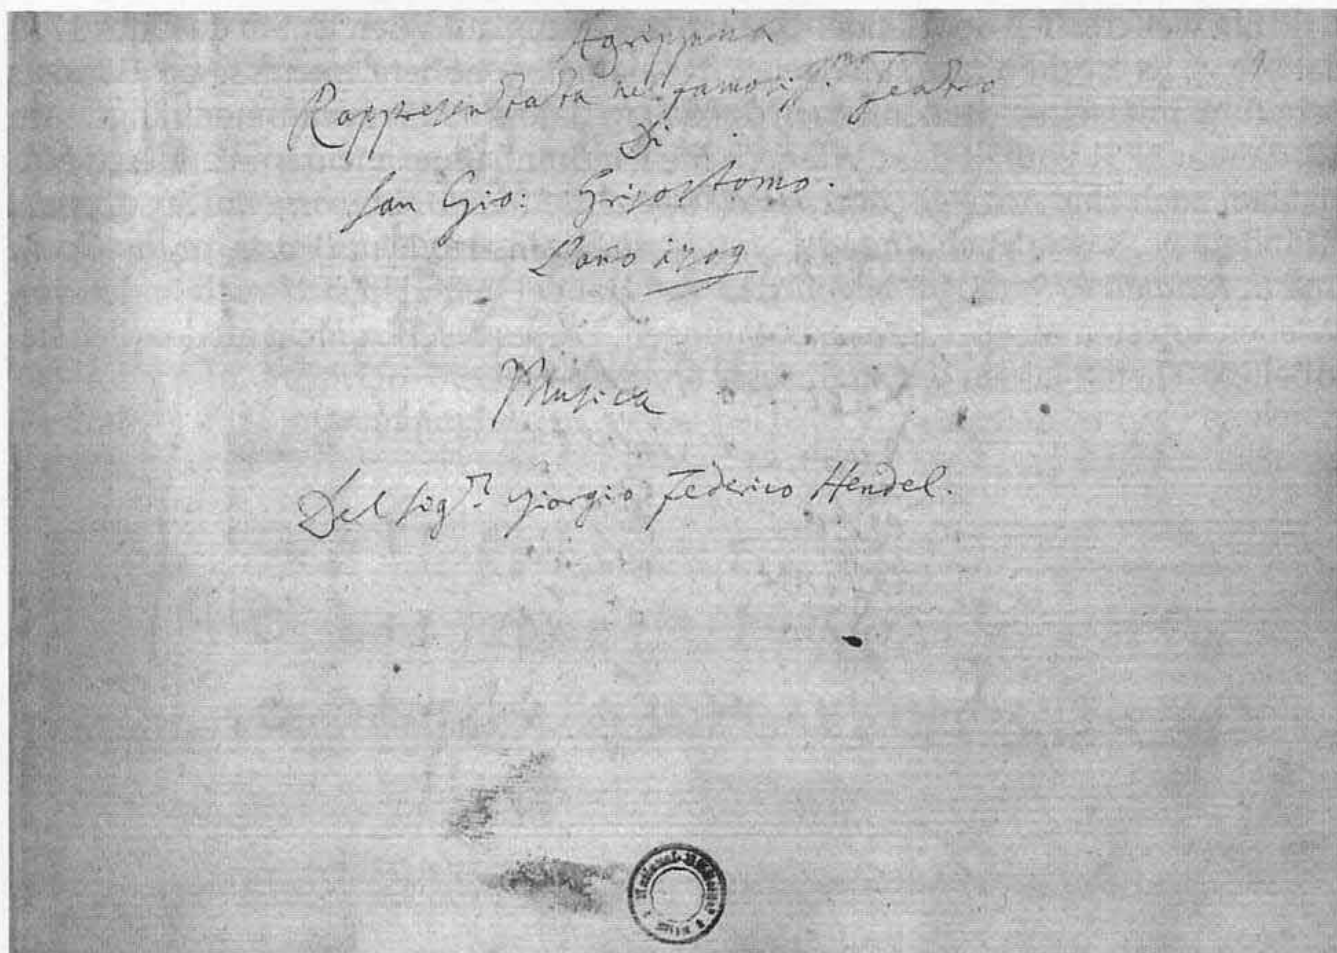 Agrippina
Rappresentata nel famosiss.mo Teatro
Di
San Gio: Grisostomo.
L'ano 1709
Musica
Del Sig.r Giorgio Federico Hendel.